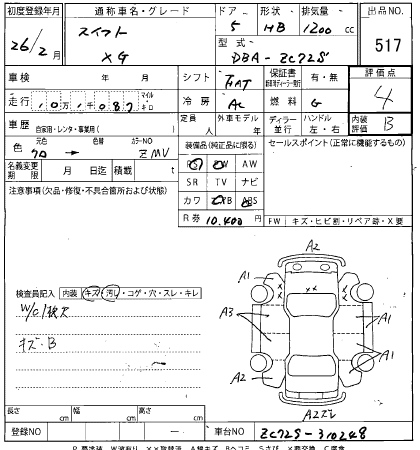 初度登録年月 通称車名・グレード ドア 形状 排気量 出品NO.
26/2月 スイフト XG 5 HB 1200cc 517
型式 DBA-ZC72S
車検 年 月 シフト FAT 保証書 有・無 評価点 4
走行 10万1千087 マイル キロ 冷房 AC 燃料 G
車歴 自家用・レンタ・事業用( ) 定員 人 外車モデル 年 ディーラー 並行 ハンドル 左・右 内装評価 B
色 元色 クロ → 色替 カラーNO ZMV
装備品(純正品に限る) セールスポイント(正常に機能するもの)
名義変更期限 月 日迄 積載 t PS PW AW
注意事項(欠品・修復・不具合箇所および状態) SR TV ナビ
カワ AB ABS
R券 10,400 FW キズ・ヒビ割・リペア跡・X要
検査員記入 内装 キズ・汚レ・コゲ・穴・スレ・キレ
W/C1枚欠
キズ・B
A2
A1 A1
A3 A1
A2 A1
A2ズレ
長さ cm 幅 cm 高さ cm
登録NO — 車台NO ZC72S-310248